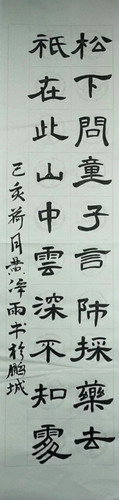 松下問童子言師採藥去
祇在此山中雲深不知處
己亥荷月黄泽雨书於鹏城